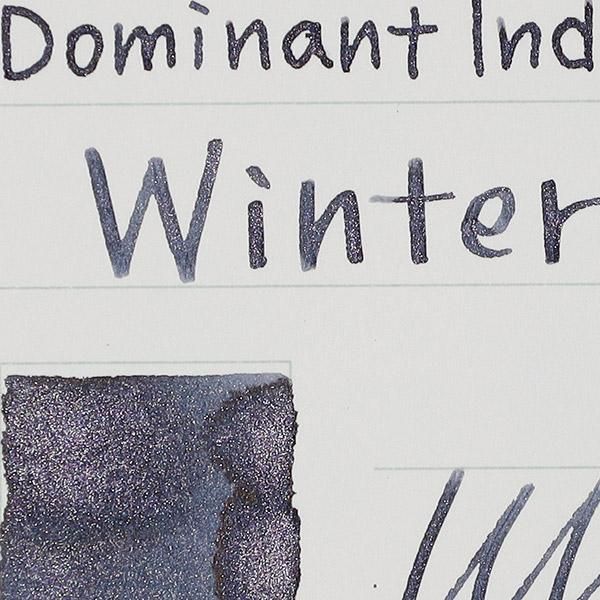 Dominant Ind
Winter